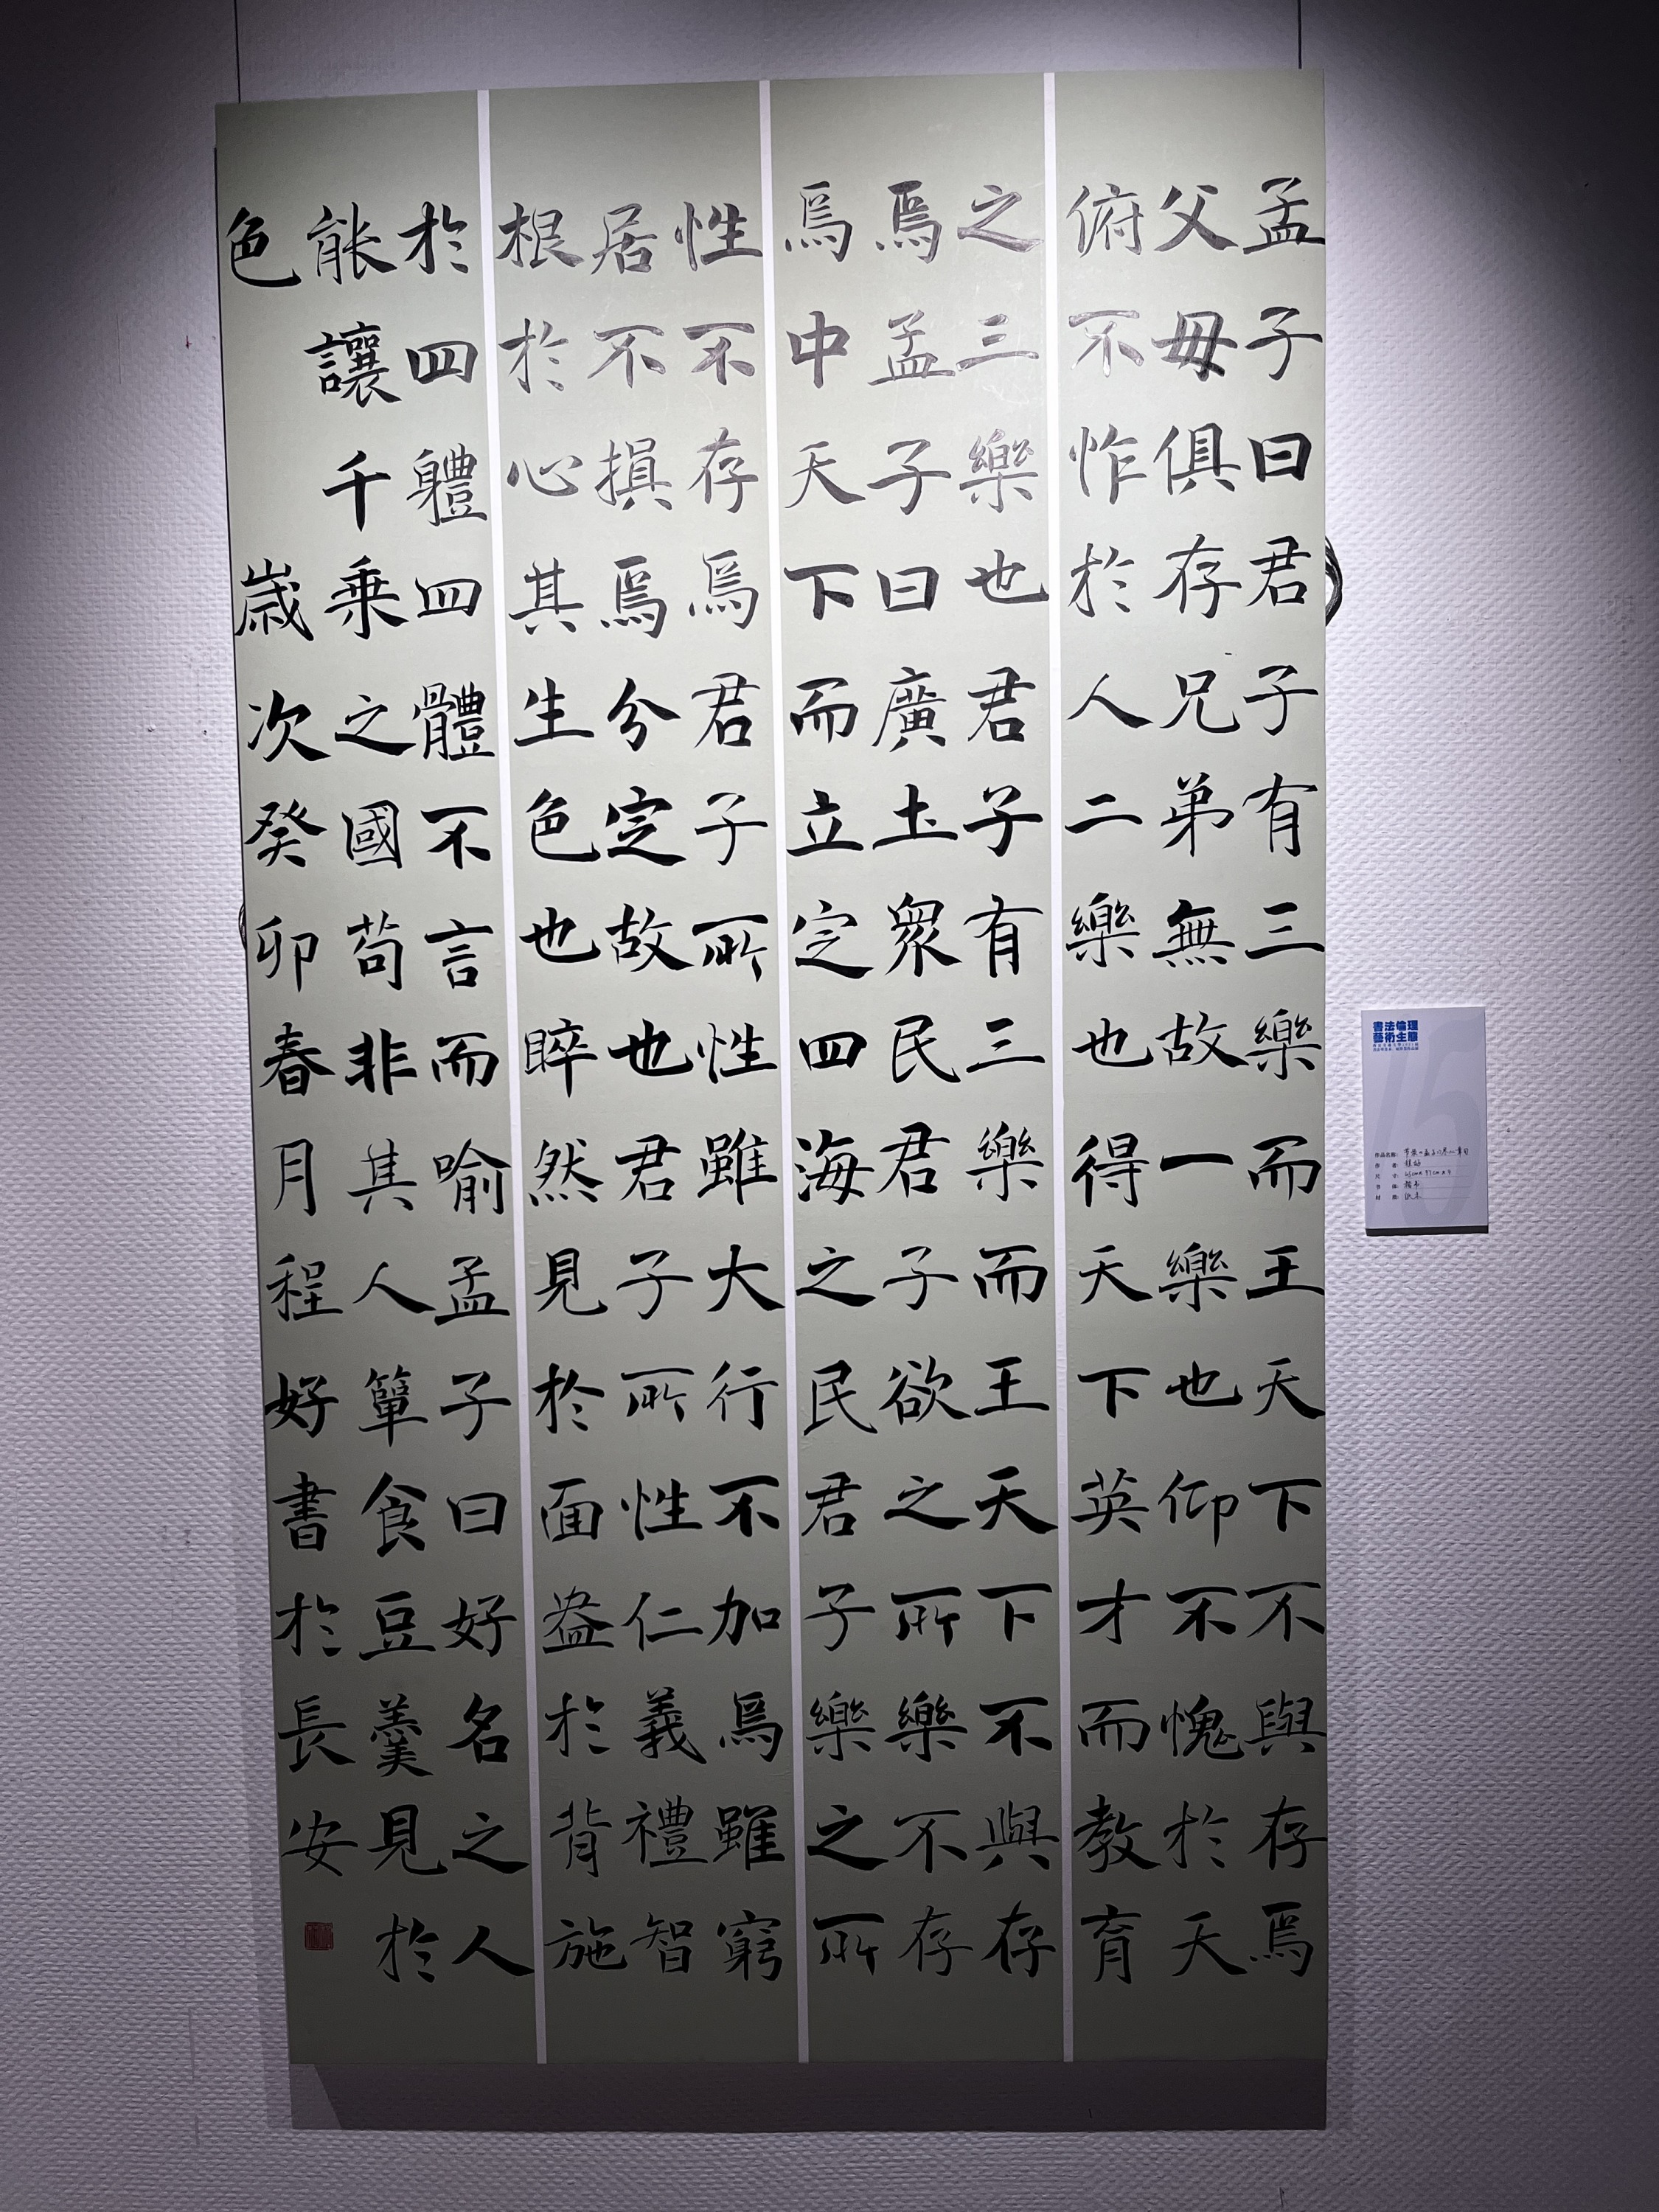 孟子曰君子有三樂而王天下不與存焉
父母俱存兄弟無故一樂也仰不愧於天
俯不怍於人二樂也得天下英才而教育
之三樂也君子有三樂而王天下不與存
焉孟子曰廣土眾民君子欲之所樂不存
焉中天下而立定四海之民君子樂之所
性不存焉君子所性雖大行不加焉雖窮
居不損焉分定故也君子所性仁義禮智
根於心其生色也睟然見於面盎於背施
於四體四體不言而喻孟子曰好名之人
能讓千乘之國苟非其人簞食豆羹見於
色
歲次癸卯春月程好書於長安
書法倫理
藝術生態
15
作品名稱:
作 者:
尺 寸:
書 體: 楷書
材 質: 紙本